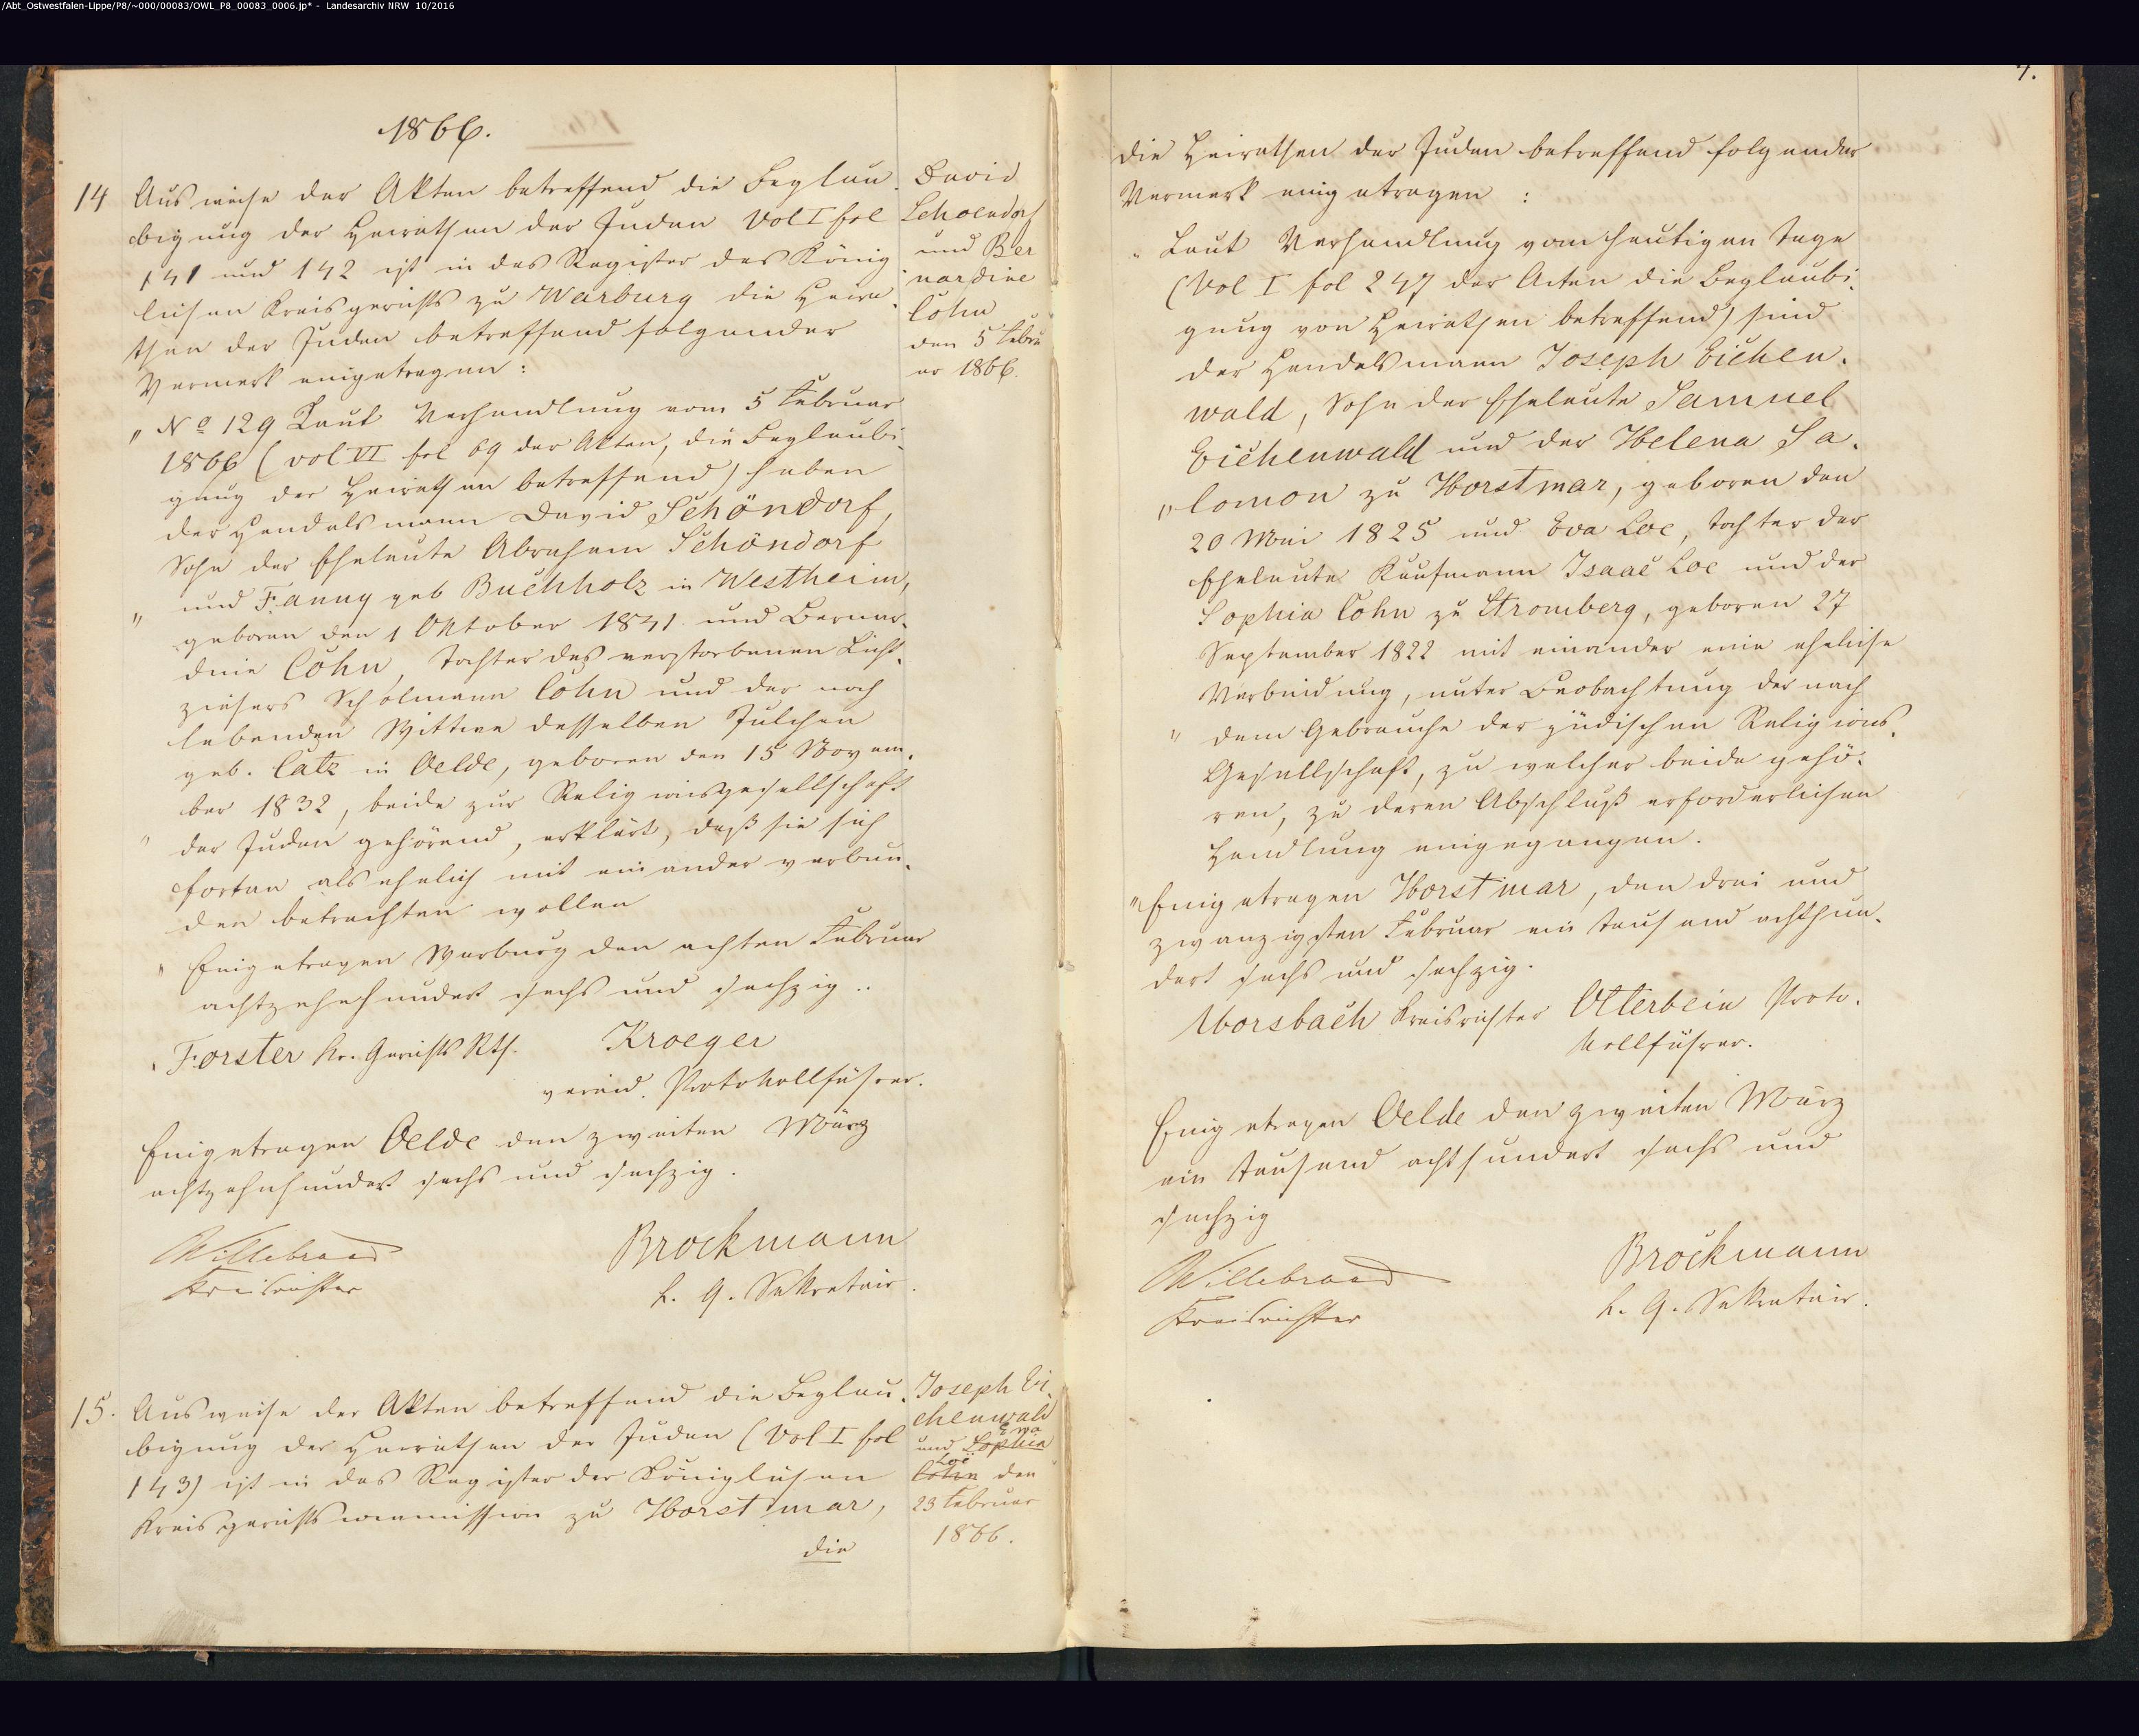 /Abt_Ostwestfalen-Lippe/P8/~000/00083/OWL_P8_00083_0006.jp* - Landesarchiv NRW 10/2016
1866.
14 Ausweise der Akten betreffend die Beglau-
bigung der Heirathen der Juden Vol I fol
141 und 142 ist in das Register des König
lichen Kreisgerichts zu Warburg die Heira-
then der Juden betreffend folgender
Vermerk eingetragen:
" No 129 Laut Verhandlung vom 5 Februar
1866 (vol VI fol 69 der Akten, die Beglaubi-
gung der Heirathen betreffend) haben
der Handelsmann David Schöndorf,
Sohn der Eheleute Abraham Schöndorf
und Fanny geb Buchholz in Westheim,
" geboren den 1 Oktober 1841 und Bernar-
dine Cohn, Tochter des verstorbenen Licht-
ziehers Scholmann Cohn und der noch
lebenden Wittwe desselben Julchen
geb. Catz in Oelde, geboren den 15 Novem-
ber 1832, beide zur Religionsgesellschaft
" der Juden gehörend, erklärt, daß sie sich
fortan als ehelich mit einander verbun-
den betrachten wollen
" Eingetragen Warburg den achten Februar
achtzehnhundert sechs und sechzig..
Forster Kr. Gerichts Rth. Kroeger
vereid. Protokollführer.
Eingetragen Oelde den zweiten März
achtzehnhundert sechs und sechzig.
Willebrand Brockmann
Kreisrichter k. G. Sekretair.
David
Schoendorf
und Ber
nardine
Cohn
den 5 Febru
ar 1866.
15. Ausweise der Akten betreffend die Beglau-
bigung der Heirathen der Juden (Vol I fol
143) ist in das Register der Königlichen
Kreisgerichtscommission zu Horstmar,
die
Joseph Ei-
chenwald
Eva
und Sophia
Loe
Cohn den
23 Februar
1866.
4.
die Heirathen der Juden betreffend folgender
Vermerk eingetragen :
" Laut Verhandlung vom heutigen Tage
(Vol I fol 247 der Acten die Beglaubi-
gung von Heirathen betreffend) sind
der Handelsmann Joseph Eichen-
wald, Sohn der Eheleute Samuel
Eichenwald und der Helena Sa-
" lomon zu Horstmar, geboren den
20 Mai 1825 und Eva Loe, Tochter der
Eheleute Kaufmann Isaac Loe und der
Sophia Cohn zu Stromberg, geboren 27
September 1822 mit einander eine eheliche
Verbindung, unter Beobachtung der nach
" dem Gebrauche der jüdischen Religions-
Gesellschaft, zu welcher beide gehö-
ren, zu deren Abschluß erforderlichen
Handlung eingegangen.
" Eingetragen Horstmar, den drei und
zwanzigsten Februar ein tausend achthun-
dert sechs und sechzig.
Morsbach Kreisrichter Otterbein Proto-
kollführer.
Eingetragen Oelde den zweiten März
ein tausend achthundert sechs und
sechzig
Willebrand Brockmann
Kreisrichter k. G. Sekretair.